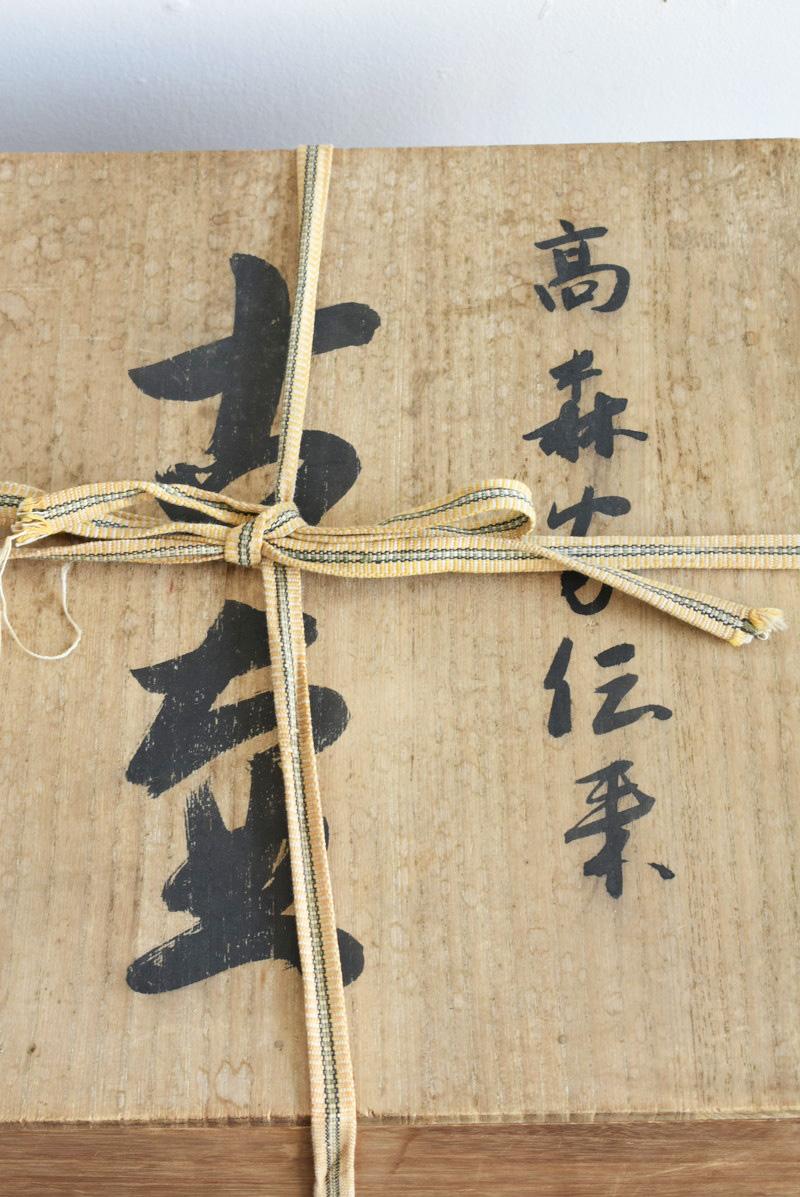 高森家伝来
古壺